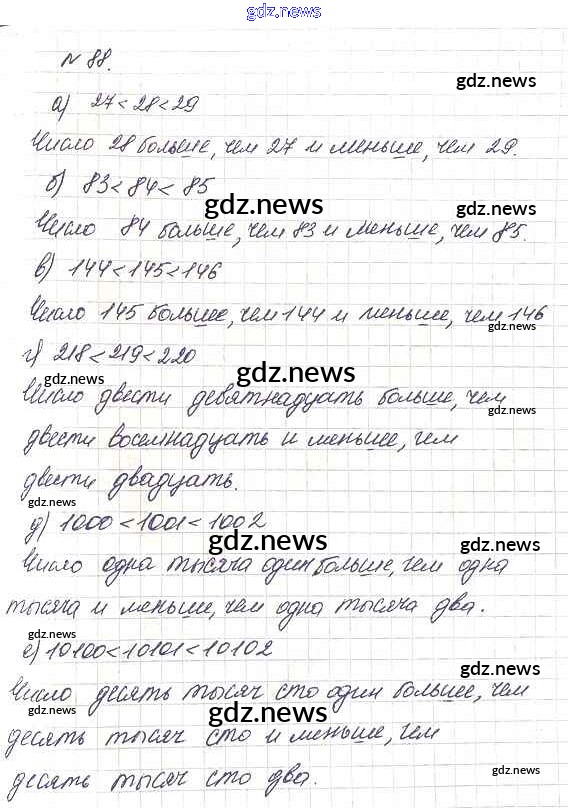 gdz.news
№ 88.
gdz.news
а) 27 < 28 < 29
Число 28 больше, чем 27 и меньше, чем 29.
б) 83 < 84 < 85
gdz.news
gdz.news
Число 84 больше, чем 83 и меньше, чем 85.
в) 144 < 145 < 146
Число 145 больше, чем 144 и меньше, чем 146
gdz.news
г) 218 < 219 < 220
gdz.news
gdz.news
Число двести девятнадцать больше, чем
gdz.news
двести восемнадцать и меньше, чем
двести двадцать.
gdz.news
д) 1000 < 1001 < 1002
gdz.news
gdz.news
Число одна тысяча один больше, чем одна
тысяча и меньше, чем одна тысяча два.
gdz.news
е) 10100 < 10101 < 10102
gdz.news
Число десять тысяч сто один больше, чем
gdz.news
gdz.news
десять тысяч сто и меньше, чем
десять тысяч сто два.
gdz.news